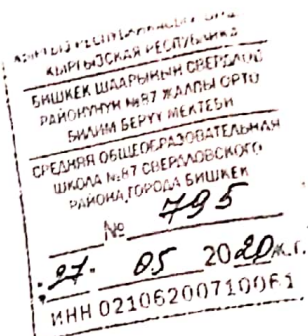 КЫРГЫЗСКАЯ РЕСПУБЛИКА
БИШКЕК ШААРЫНЫН СВЕРДЛОВ
РАЙОНУНУН №87 ЖАЛПЫ ОРТО
БИЛИМ БЕРҮҮ МЕКТЕБИ
СРЕДНЯЯ ОБЩЕОБРАЗОВАТЕЛЬНАЯ
ШКОЛА №87 СВЕРДЛОВСКОГО
РАЙОНА ГОРОДА БИШКЕК
№ 795
27. 05 2020 ж.г.
ИНН 02106200710061